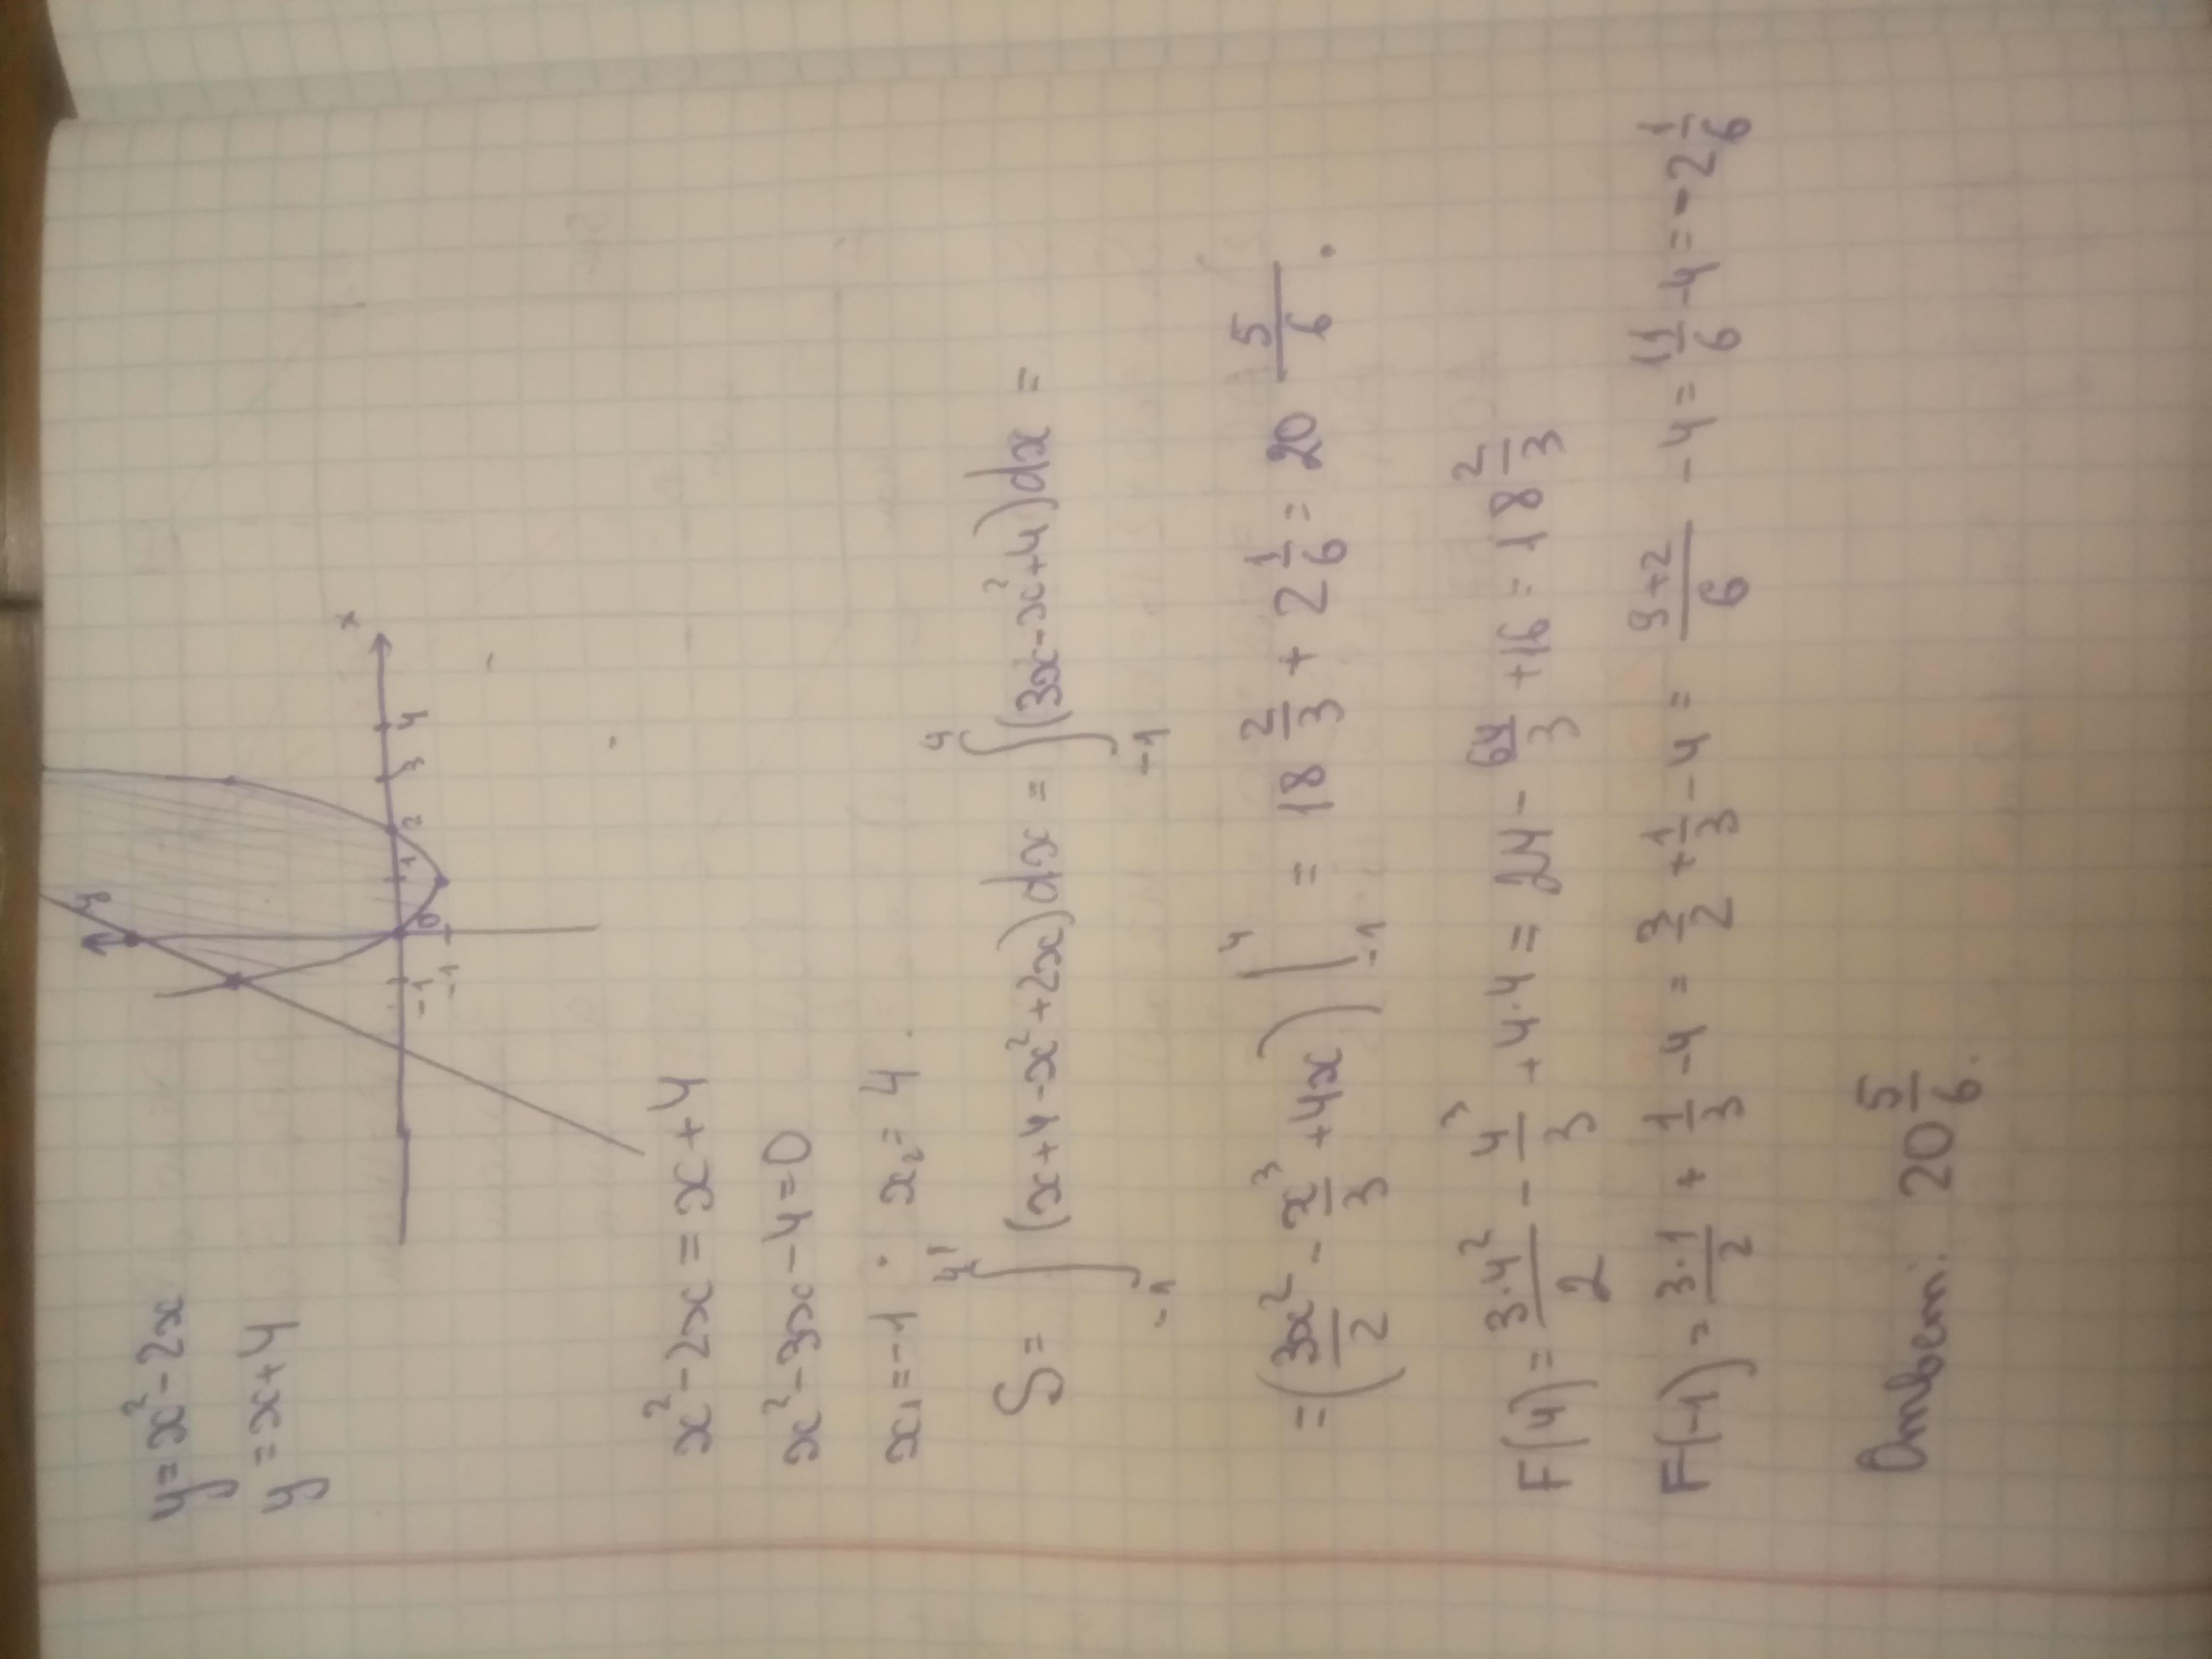 y=x²-2x
y=x+4
y
x
-1 0 1 2 3 4
-1
x²-2x=x+4
x²-3x-4=0
x₁=-1; x₂=4.
S = ∫₋₁⁴ (x+4-x²+2x)dx = ∫₋₁⁴ (3x-x²+4)dx =
= (3x²/2 - x³/3 + 4x) |₋₁⁴ = 18 2/3 + 2 1/6 = 20 5/6.
F(4) = 3·4²/2 - 4³/3 + 4·4 = 24 - 64/3 + 16 = 18 2/3
F(-1) = 3·1/2 + 1/3 - 4 = 3/2 + 1/3 - 4 = 9+2/6 - 4 = 11/6 - 4 = -2 1/6
Ответ: 20 5/6.